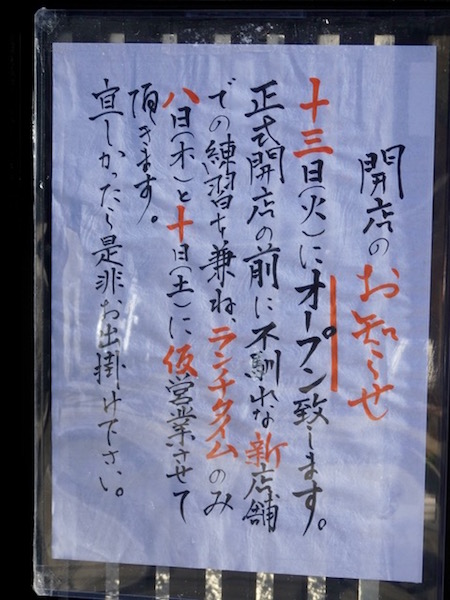 開店のお知らせ
十三日(火)にオープン致します。
正式開店の前に不馴れな新店舗
での練習も兼ね、ランチタイムのみ
八日(木)と十日(土)に仮営業させて
頂きます。
宜しかったら是非お出掛け下さい。